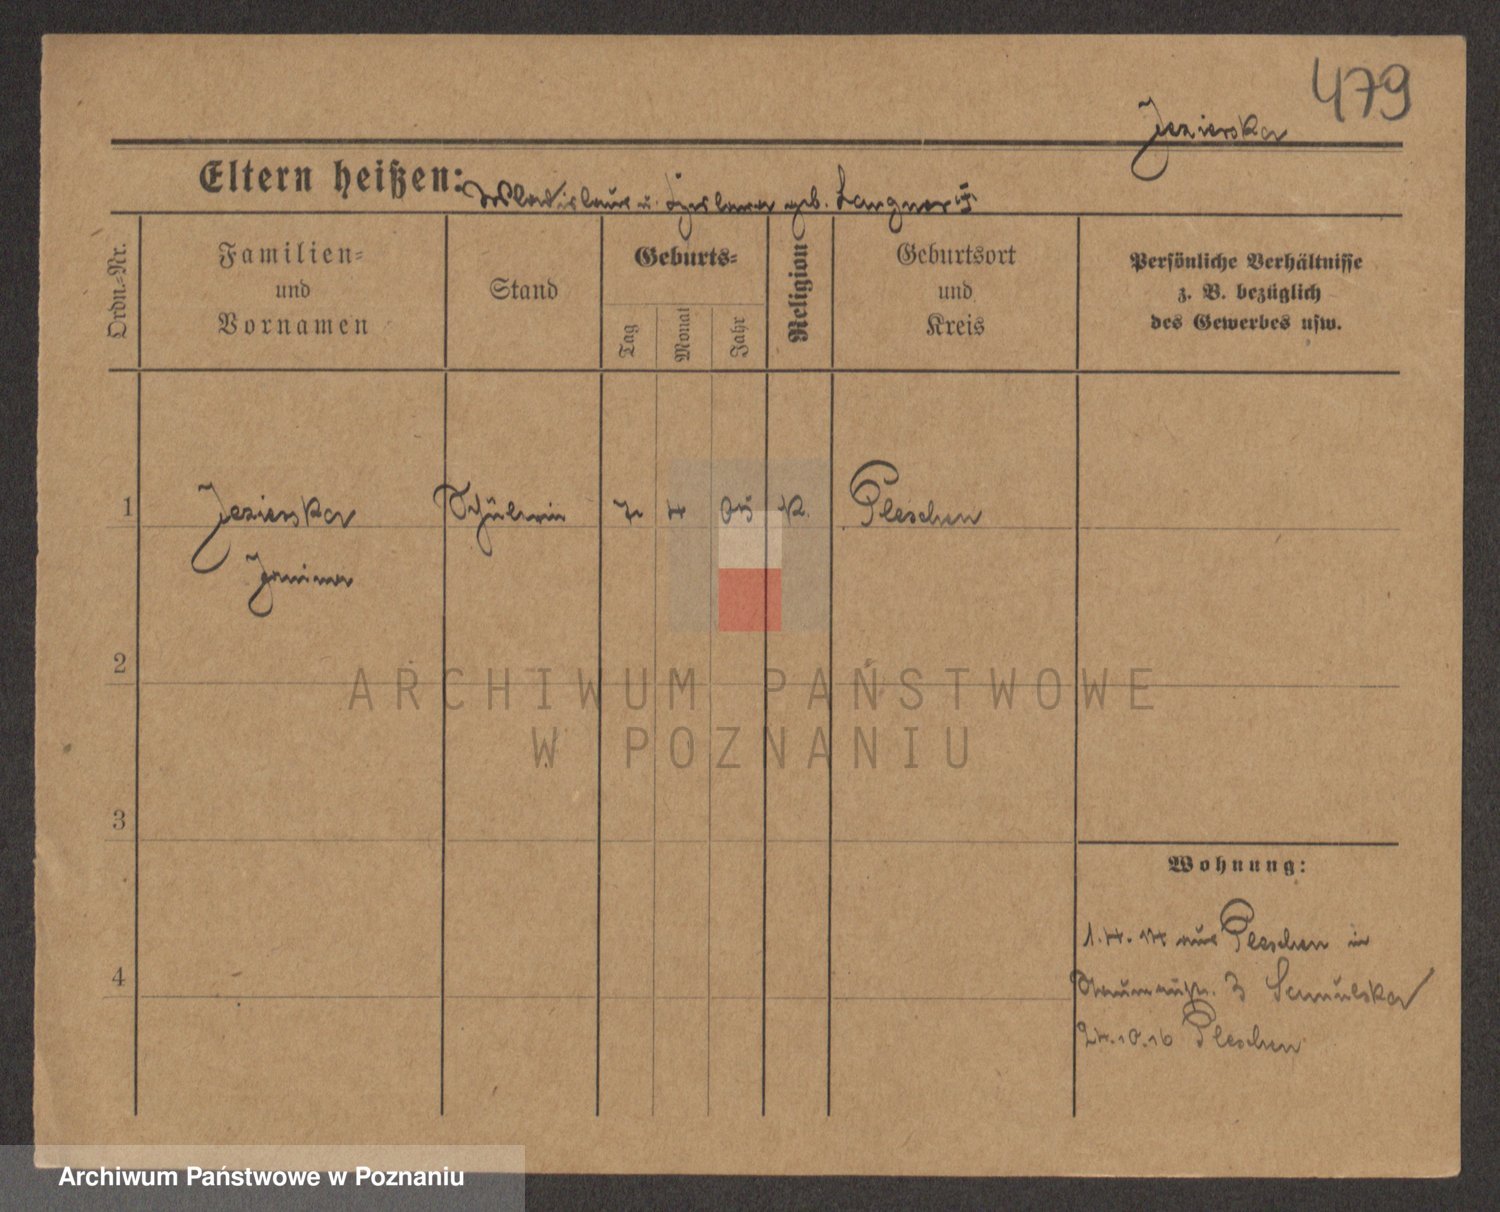 479
Jezierska
Eltern heißen: Wladislaus u. geb.
Ordn.-Nr.
Familien-
und
Vornamen
Stand
Geburts-
Tag
Monat
Jahr
Religion
Geburtsort
und
Kreis
Persönliche Verhältnisse
z. B. bezüglich
des Gewerbes usw.
1 Jezierska Schülerin 7 4 05 K. Pleschen
Janina
2
3
4
Wohnung:
1.4.14 aus Pleschen in
3 Samulska
24.10.16 Pleschen
ARCHIWUM PAŃSTWOWE
W POZNANIU
Archiwum Państwowe w Poznaniu